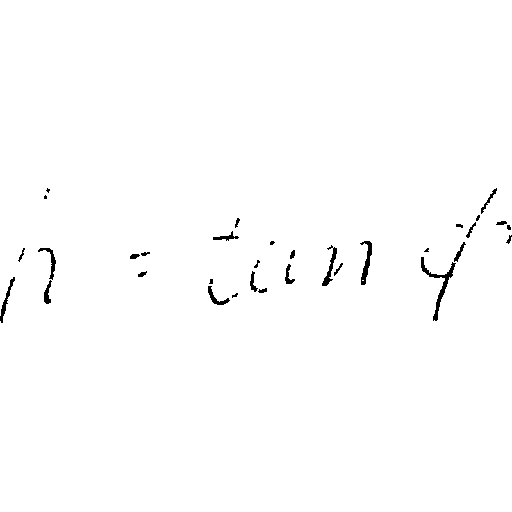 h = tan φ